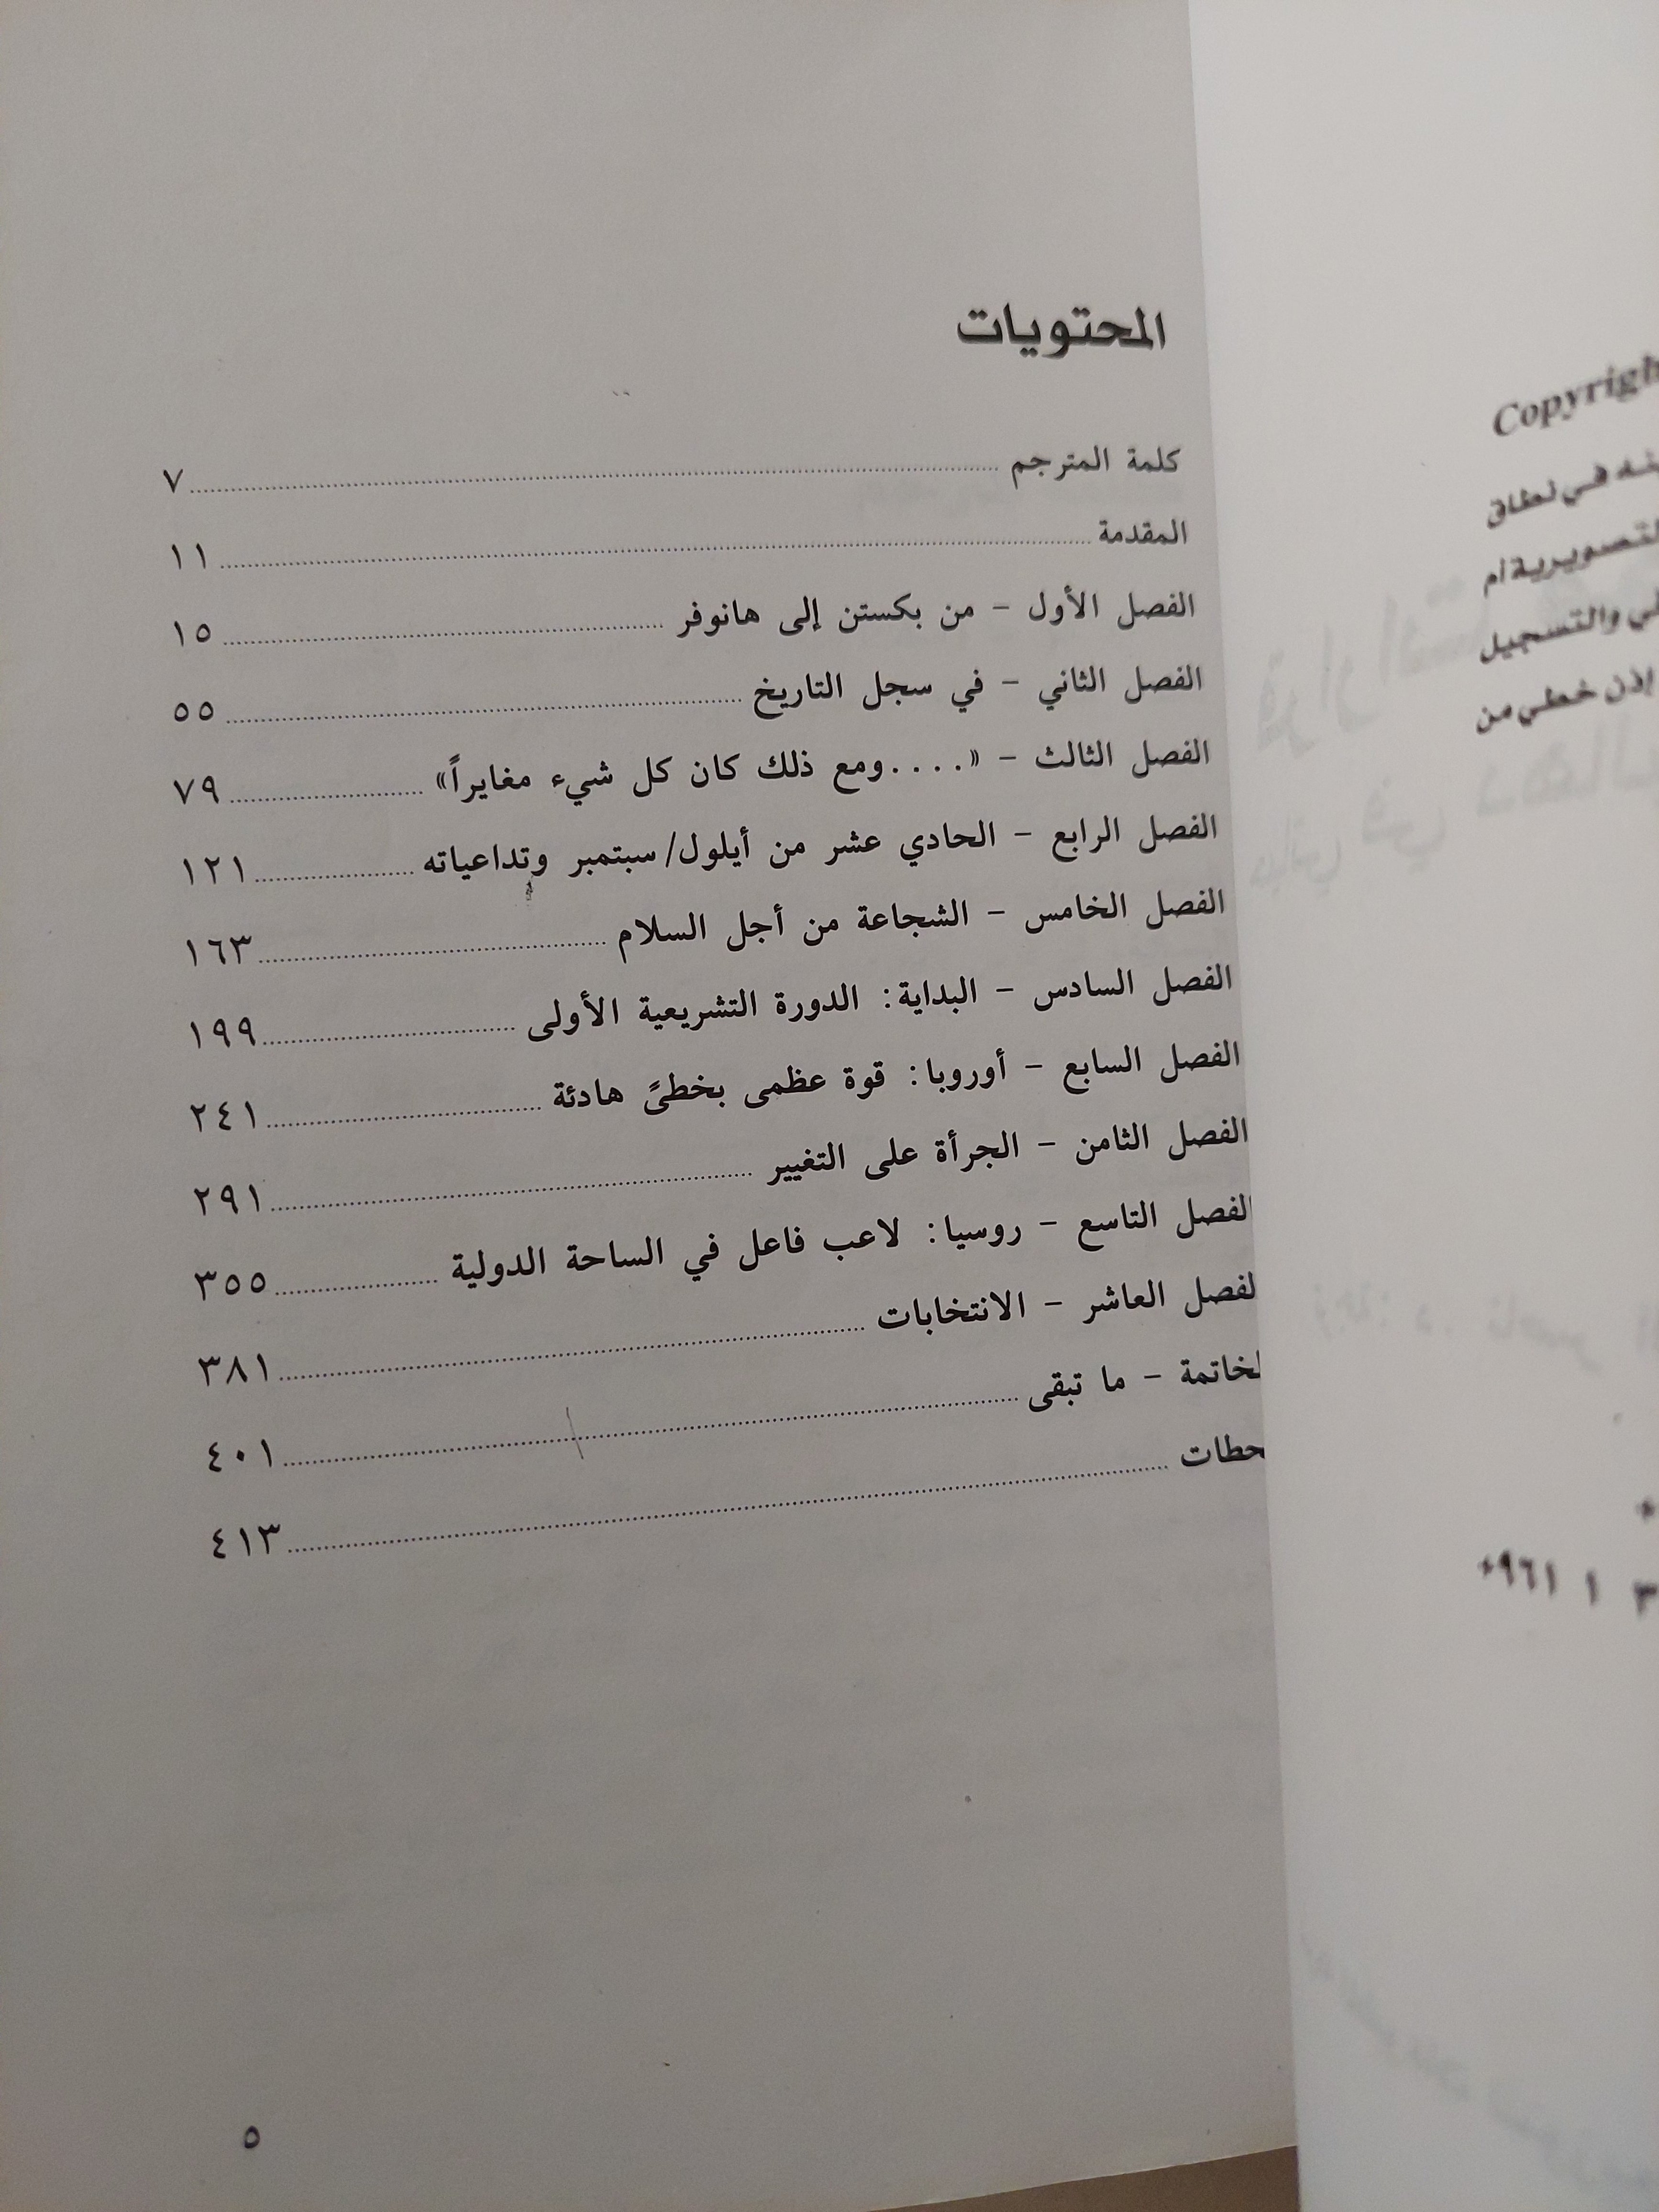 Copyrigh
في نطاق
التصويرية أم
والتسجيل
إذن خطي من
+٩٦١ ١ ٣
المحتويات
كلمة المترجم ........ ٧
المقدمة ........ ١١
الفصل الأول – من بكستن إلى هانوفر ........ ١٥
الفصل الثاني – في سجل التاريخ ........ ٥٥
الفصل الثالث – «....ومع ذلك كان كل شيء مغايراً» ........ ٧٩
الفصل الرابع – الحادي عشر من أيلول/سبتمبر وتداعياته ........ ١٢١
الفصل الخامس – الشجاعة من أجل السلام ........ ١٦٣
الفصل السادس – البداية: الدورة التشريعية الأولى ........ ١٩٩
الفصل السابع – أوروبا: قوة عظمى بخطىً هادئة ........ ٢٤١
الفصل الثامن – الجرأة على التغيير ........ ٢٩١
الفصل التاسع – روسيا: لاعب فاعل في الساحة الدولية ........ ٣٥٥
لفصل العاشر – الانتخابات ........ ٣٨١
لخاتمة – ما تبقى ........ ٤٠١
حطات ........ ٤١٣
٥